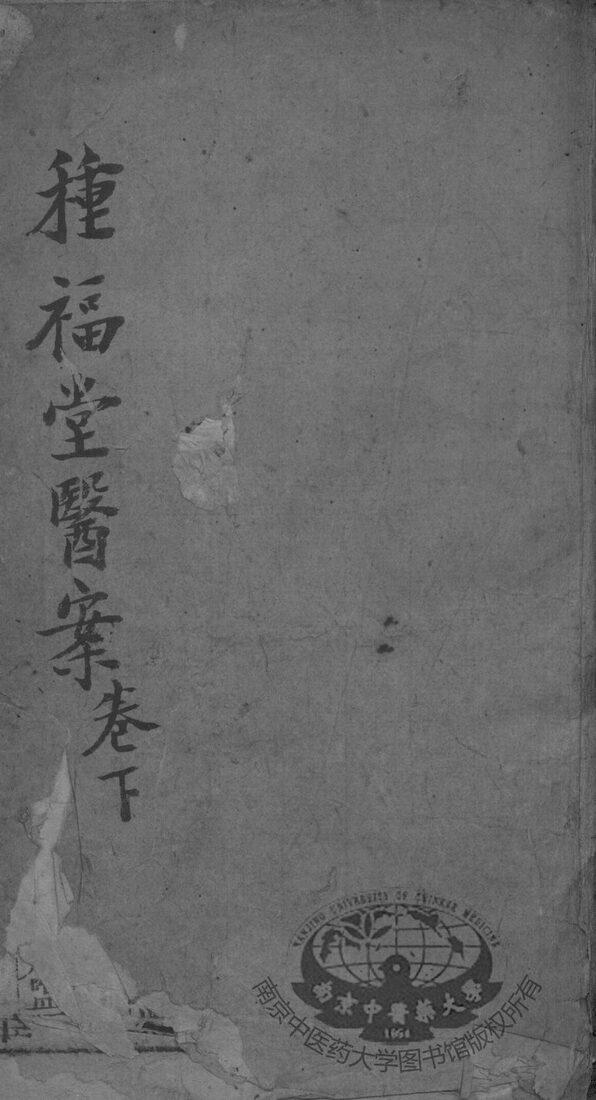 種福堂醫案
卷下
NANJING UNIVERSITY OF CHINESE MEDICINE
南京中醫藥大學
1954
南京中医药大学图书馆版权所有